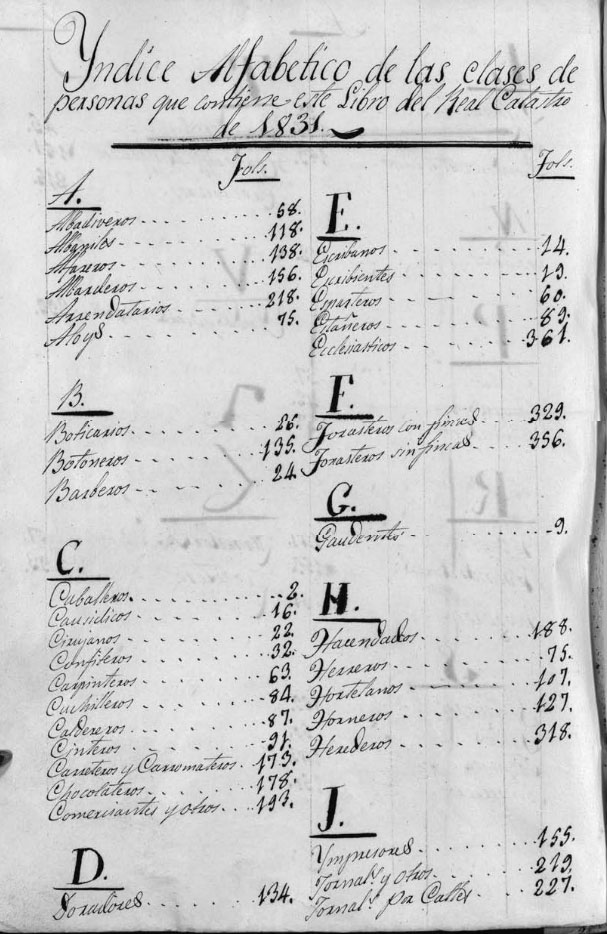 Yndice Alfabetico de las clases de
personas que contiene este Libro del Real Catastro
de 1831.
Fols.
A.
Abadiveros 58.
Albañiles 118.
Alfareros 138.
Albarderos 156.
Arrendatarios 218.
Aloys 75.
B.
Boticarios 26.
Botoneros 135.
Barberos 24.
C.
Caballeros 2.
Causidicos 16.
Cirujanos 22.
Confiteros 32.
Carpinteros 63.
Cuchilleros 84.
Caldereros 87.
Cinteros 91.
Carreteros y Carromateros 173.
Chocolateros 178.
Comerciantes y otros 193.
D.
Doradores 134.
Fols.
E.
Escribanos 14.
Escribientes 19.
Esparteros 60.
Estañeros 89.
Ecclesiasticos 361.
F.
Forasteros con fincas 329.
Forasteros sin fincas 356.
G.
Gaudents 9.
H.
Hacendados 188.
Herreros 75.
Hortelanos 107.
Horneros 127.
Herederos 318.
J.
Ympresores 155.
Jornal.s y otros 219.
Jornal.s por Calles 227.